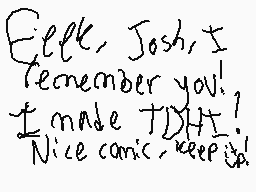 Eeek, Josh, I
remember you!
I made TDHI!
Nice comic, keep it up!